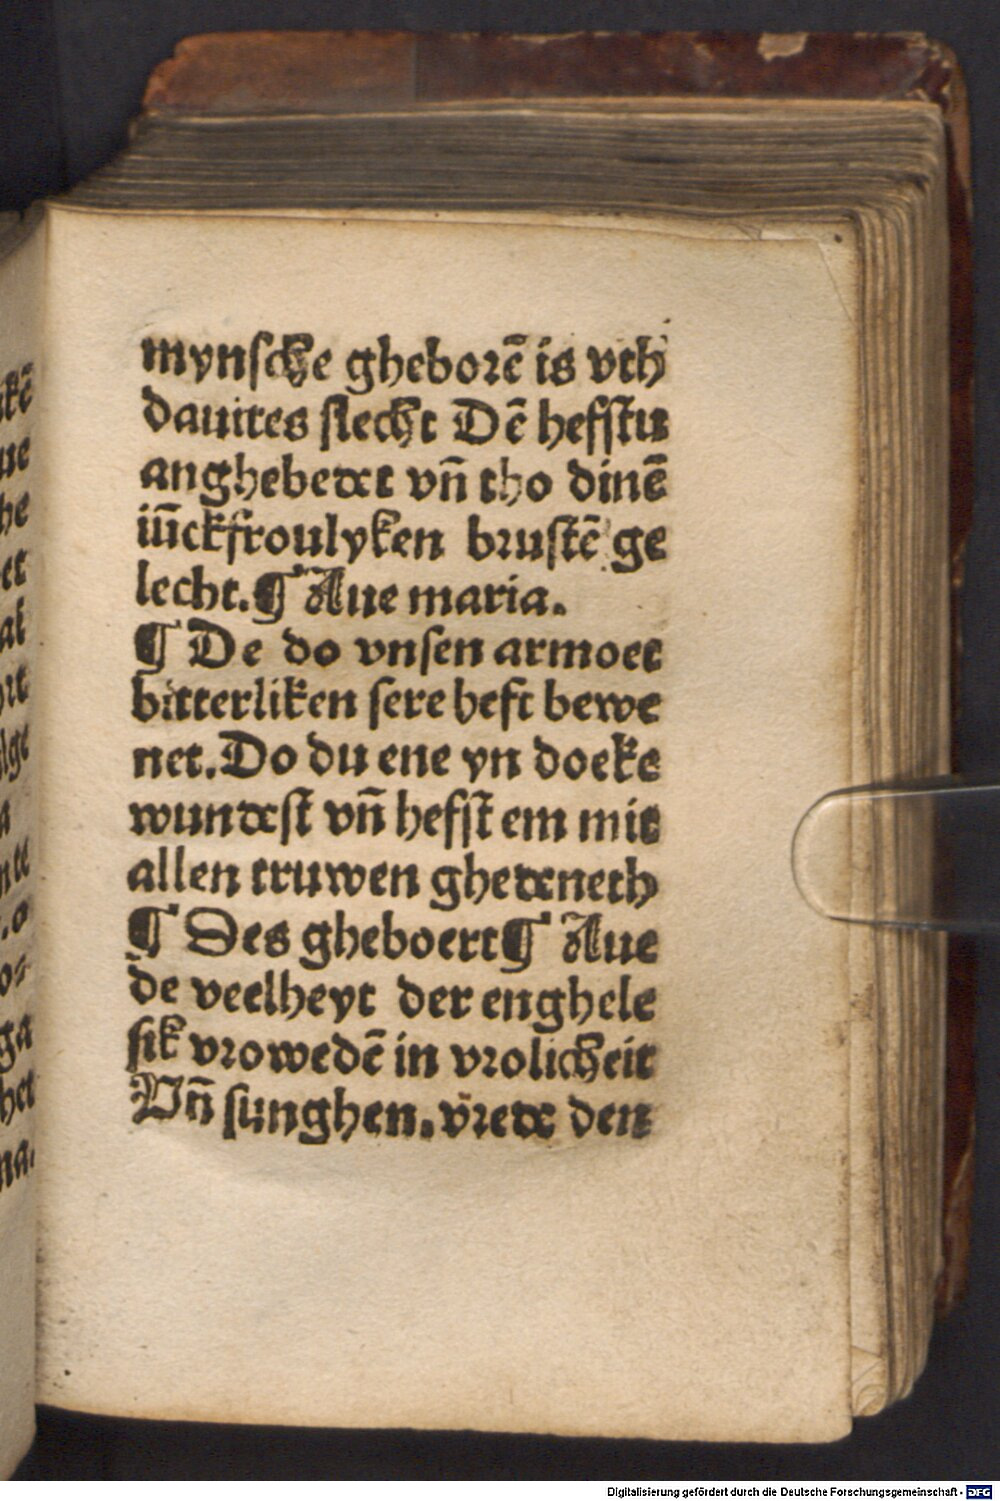 mynsche gheborē is vth
dauites slecht Dē hefstu
anghebedet vn̄ tho dinē
iūckfroulyken brustē ge
lecht.¶ Aue maria.
¶ De do vnsen armoet
bitterliken sere heft bewe
net. Do du ene yn doeke
wundest vn̄ hefst em mit
allen truwen ghedeneth
¶ Des gheboert ¶ Aue
de veelheyt der enghele
sik vrowedē in vrolicheit
Vn̄ sunghen. vrede den
Digitalisierung gefördert durch die Deutsche Forschungsgemeinschaft - DFG